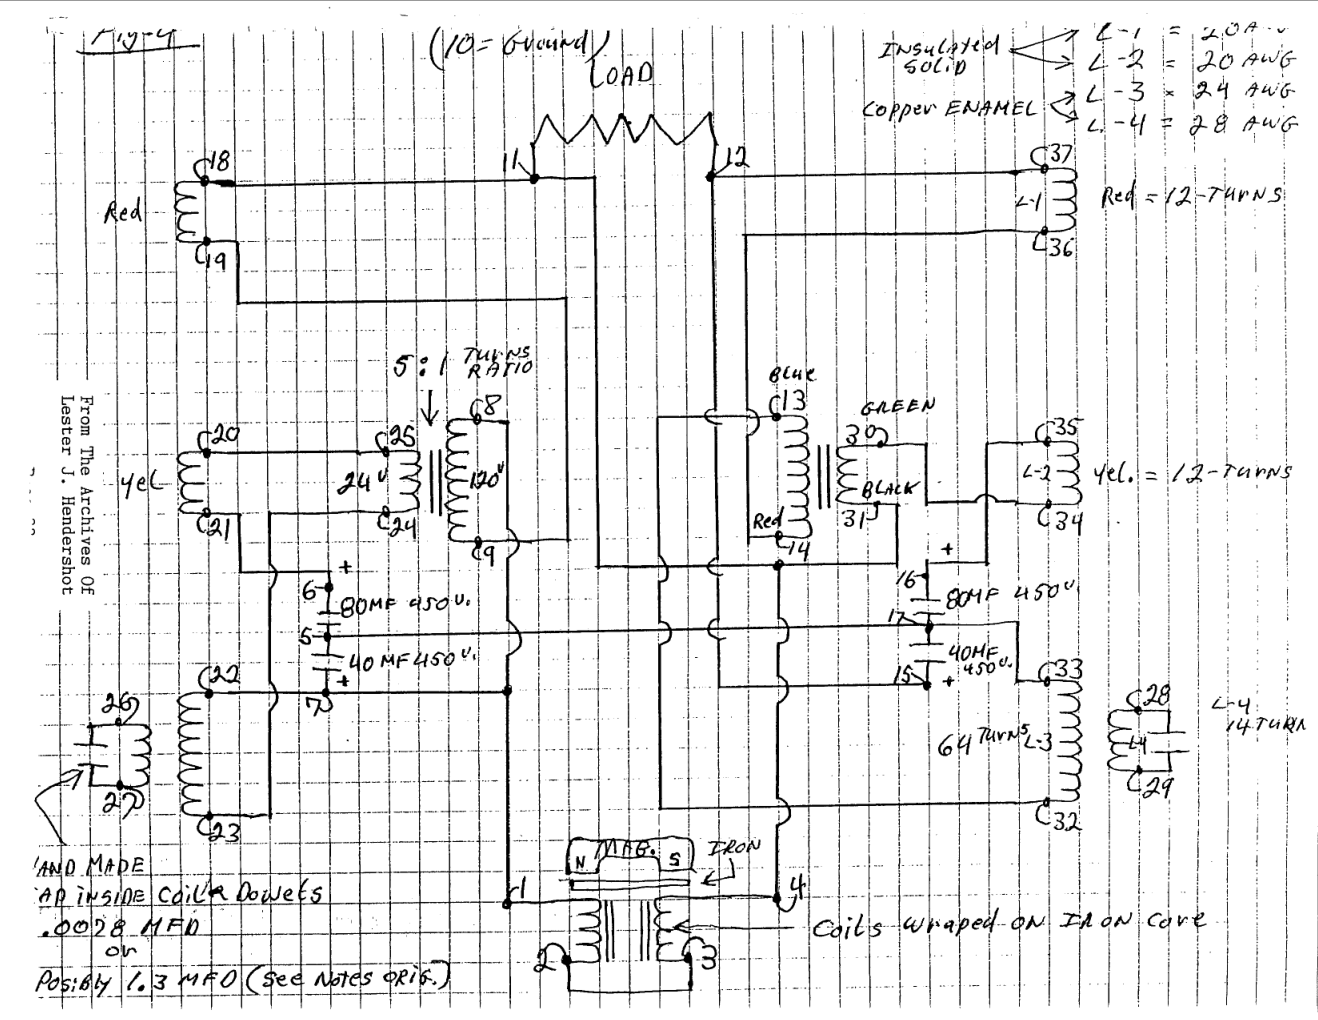 Fig-4
(10 = Ground)
LOAD
INSULATED
SOLID
L-1 = 20 A
L-2 = 20 AWG
L-3 = 24 AWG
L-4 = 28 AWG
Copper ENAMEL
18
11
12
37
Red
L-1
Red = 12-TURNS
19
36
5:1 TURNS
RATIO
Blue
8
13
GREEN
20
25
30
35
Yel
24V
120V
L-2
Yel. = 12-TURNS
BLACK
21
24
Red
31
34
9
14
From The Archives Of
Lester J. Hendershot
+
+
6
80MF 450V.
16
80MF 450V
5
17
40MF 450V.
40MF
450V.
+
15
+
22
7
33
26
28
L-4
14 TURN
64 TURNS L-3
L4
27
29
23
32
MAG.
N
S
IRON
AND MADE
AP INSIDE Coil & Dowels
.0028 MFD
or
POSIBLY 1.3 MFD (See Notes ORIG.)
1
4
Coils wraped ON IRON Core
2
3